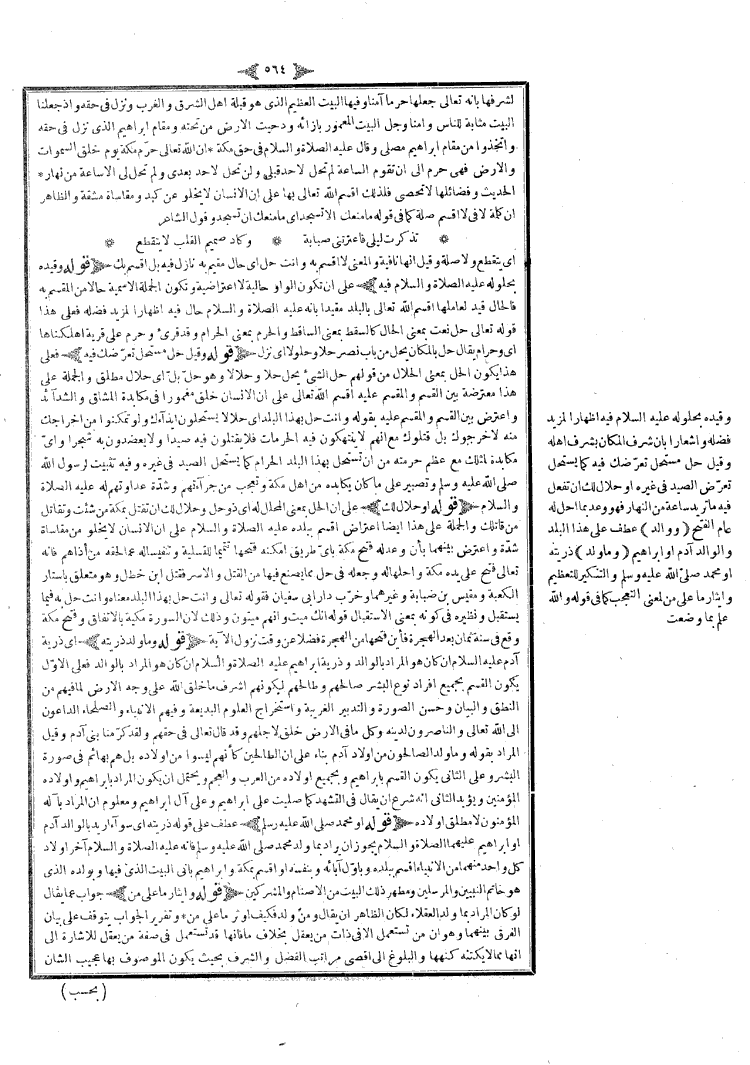 ٥٦٤
لشرفها بانه تعالى جعلها حرما آمنا وفيها البيت العظيم الذى هو قبلة اهل الشرق و الغرب ونزل فى حقه واذ جعلنا
البيت مثابة للناس و امنا وجل البيت المعمور بازائه و دحيت الارض من تحته و مقام ابراهيم الذى نزل فى حقه
واتخذوا من مقام ابراهيم مصلى و قال عليه الصلاة و السلام فى حق مكة * ان الله تعالى حرّم مكة يوم خلق السموات
والارض فهى حرم الى ان تقوم الساعة لم تحل لاحد قبلى و لن تحل لاحد بعدى و لم تحل لى الا ساعة من نهار *
الحديث و فضائلها لا تحصى فلذلك اقسم الله تعالى بها على ان الانسان لا يخلو عن كبد و مقاساة مشقة و الظاهر
ان كلمة لا فى لا اقسم صلة كما فى قوله ما منعك الا تسجد اى ما منعك ان تسجد و قول الشاعر
* تذكرت ليلى فاعترتنى صبابة * وكاد صميم القلب لا يتقطع *
اى يتقطع و لا صلة و قيل انها نافية و المعنى لا اقسم به و انت حل اى حال مقيم به نازل فيه بل اقسم بك ﴿ قوله وقيده
بحلوله عليه الصلاة و السلام فيه ﴾ على ان تكون الواو حالية لا اعتراضية و تكون الجملة الاسمية حالا من المقسم به
فالحال قيد لعاملها اقسم الله تعالى بالبلد مقيدا بانه عليه الصلاة و السلام حال فيه اظهارا لمزيد فضله فعلى هذا
قوله تعالى حل نعت بمعنى الحال كالسقط بمعنى الساقط و الحرم بمعنى الحرام و قد قرئ و حرم على قرية اهلكناها
اى وحرام يقال حل بالمكان يحل من باب نصر حلا و حلولا اى نزل ﴿ قوله وقيل حل مستحل تعرّضك فيه ﴾ فعلى
هذا يكون الحل بمعنى الحلال من قولهم حل الشئ يحل حلا و حلالا و هو حل بلّ اى حلال مطلق و الجملة على
هذا معترضة بين القسم و المقسم عليه اقسم الله تعالى على ان الانسان خلق مغمورا فى مكابدة المشاق و الشدائد
و اعترض بين القسم و المقسم عليه بقوله و انت حل بهذا البلد اى حلالا يستحلون ايذاءك و لو تمكنوا من اخراجك
منه لاخرجوك بل قتلوك مع انهم لا ينتهكون فيه الحرمات فلا يقتلون فيه صيدا و لا يعضدون به شجرا و اىّ
مكابدة لمثلك مع عظم حرمته من ان تستحل بهذا البلد الحرام كما يستحل الصيد فى غيره و فيه تثبيت لرسول الله
صلى الله عليه وسلم و تصبير على ما كان يكابده من اهل مكة و تعجيب من جرآءتهم و شدّة عداوتهم له عليه الصلاة
و السلام ﴿ قوله او حلال لك ﴾ على ان الحل بمعنى المحلل له اى ذو حل و حلال لك ان تقتل بمكة من شئت و تقاتل
من قاتلك و الجملة على هذا ايضا اعتراض اقسم ببلده عليه الصلاة و السلام على ان الانسان لا يخلو من مقاساة
شدّة و اعترض بينهما بأن و عد له فتح مكة باى طريق امكنه فتحها تتميما للتسلية و تنفيسا له عما لحقه من أذاهم فانه
تعالى فتح على يده مكة و احلها له و جعله فى حل مما يصنع فيها من القتل و الاسر فقتل ابن خطل و هو متعلق باستار
الكعبة و مقيس بن ضبابة و غيرهما و خرّب دار ابى سفيان فقوله تعالى و انت حل بهذا البلد معناه و انت حل به فيما
يستقبل و نظيره فى كونه بمعنى الاستقبال قوله انك ميت و انهم ميتون و ذلك لان السورة مكية بالاتفاق و فتح مكة
وقع فى سنة ثمان بعد الهجرة فأين فتحها من الهجرة فضلا عن وقت نزول الآية ﴿ قوله وما ولد ذريته ﴾ اى ذرية
آدم عليه السلام ان كان هو المراد بالوالد و ذرية ابراهيم عليه الصلاة و السلام ان كان هو المراد بالوالد فعلى الاوّل
يكون القسم بجميع افراد نوع البشر صالحهم و طالحهم ليكونهم اشرف ما خلق الله على وجه الارض لما فيهم من
النطق و البيان و حسن الصورة و التدبير الغريبة و استخراج العلوم البديعة و فيهم الانبياء و الصلحاء الداعون
الى الله تعالى و الناصرون لدينه و كل ما فى الارض خلق لاجلهم و قد قال تعالى فى حقهم و لقد كرّمنا بنى آدم و قيل
المراد بقوله و ما ولد الصالحون من اولاد آدم بناء على ان الطالحين كأنهم ليسوا من اولاده بل هم بهائم فى صورة
البشر و على الثانى يكون القسم بابراهيم و بجميع اولاده من العرب و العجم و يحتمل ان يكون المراد بابراهيم و اولاده
المؤمنين و يؤيد الثانى انه شرع ان يقال فى التشهد كما صليت على ابراهيم و على آل ابراهيم و معلوم ان المراد بآله
المؤمنون لا مطلق اولاده ﴿ قوله او محمد صلى الله عليه وسلم ﴾ عطف على قوله ذريته اى سوآء اريد بالوالد آدم
او ابراهيم عليهما الصلاة و السلام يجوز ان يراد بما ولد محمد صلى الله عليه وسلم فانه عليه الصلاة و السلام آخر اولاد
كل واحد منهما من الانبياء اقسم ببلده و باوّل آبائه و بنفسه او اقسم بمكة و ابراهيم بانى البيت الذى فيها و بولده الذى
هو خاتم النبيين و المرسلين و مطهر ذلك البيت من الاصنام و المشركين ﴿ قوله و ايثار ما على من ﴾ جواب عما يقال
لو كان المراد بما ولد العقلاء لكان الظاهر ان يقال و من ولد فكيف اوثر ما على من * و تقرير الجواب يتوقف على بيان
الفرق بينهما و هو ان من تستعمل الا فى ذات من يعقل بخلاف ما فانها قد تستعمل فى صفة من يعقل للاشارة الى
انها مما لا يكتنه كنهها و البلوغ الى اقصى مراتب الفضل و الشرف بحيث يكون الموصوف بها عجيب الشان
( بحسب )
و قيده بحلوله عليه السلام فيه اظهارا لمزيد
فضله و اشعارا بان شرف المكان بشرف اهله
و قيل حل مستحل تعرّضك فيه كما يستحل
تعرّض الصيد فى غيره او حلال لك ان تفعل
فيه ما تريد ساعة من النهار فهو وعد بما احل له
عام الفتح ( ووالد ) عطف على هذا البلد
و الوالد آدم او ابراهيم ( وما ولد ) ذريته
او محمد صلى الله عليه وسلم و التنكير للتعظيم
و ايثار ما على من لمعنى التعجب كما فى قوله و الله
علم بما وضعت